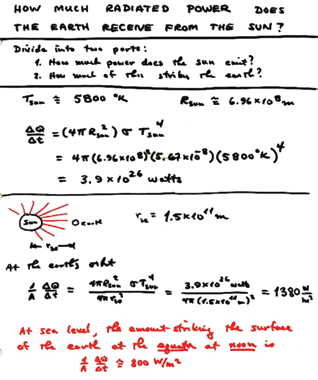 HOW MUCH RADIATED POWER DOES
THE EARTH RECEIVE FROM THE SUN?
Divide into two parts:
1. How much power does the sun emit?
2. How much of this strikes the earth?
T_sun ≅ 5800 °K R_sun ≅ 6.96×10^8 m
ΔQ/Δt = (4πR_sun^2) σ T_sun^4
= 4π(6.96×10^8)^2(5.67×10^-8)(5800°K)^4
= 3.9×10^26 watts
Sun earth r_se = 1.5×10^11 m
r_se
At the earth's orbit
1/A ΔQ/Δt = 4πR_sun^2 σ T_sun^4 / 4πr_se^2 = 3.9×10^26 watts / 4π(1.5×10^11 m)^2 = 1380 W/m^2
At sea level, the amount striking the surface
of the earth at the equator at noon is
1/A ΔQ/Δt ≅ 800 W/m^2